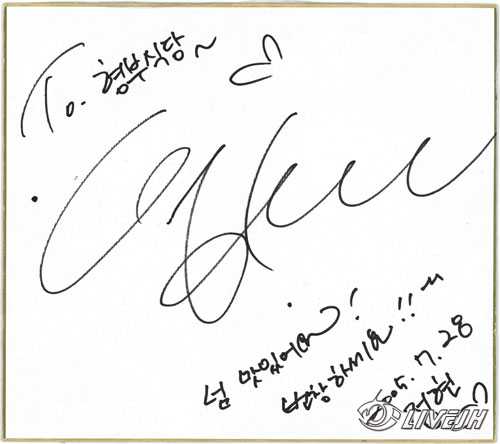 To. 형부식당~ ♡
넘 맛있어요!
번창하세요!!~
2005. 7. 28
LIVEJH